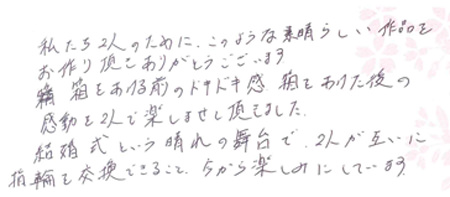 私たち2人のために、このような素晴らしい作品を
お作り頂てありがとうございます
箱をあける前のドキドキ感 箱をあけた後の
感動を2人で楽しませて頂てました。
結婚式という晴れの舞台で、2人が互いに
指輪を交換できること、今から楽しみにしています